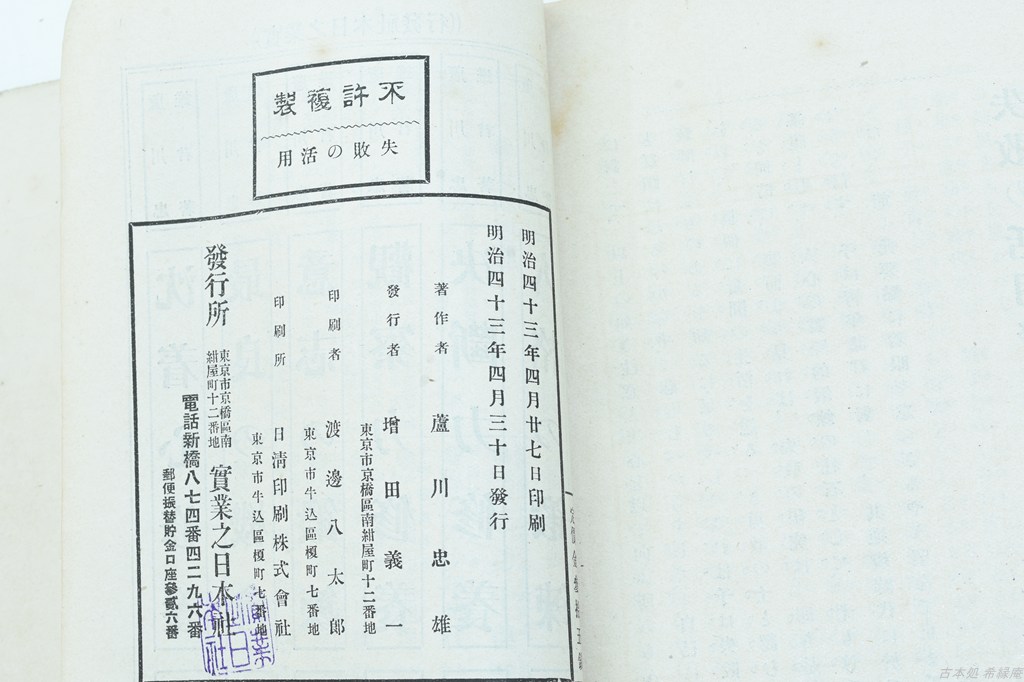 不許複製
失敗の活用
明治四十三年四月廿七日印刷
明治四十三年四月三十日發行
著作者 蘆川忠雄
發行者 增田義一
東京市京橋區南紺屋町十二番地
印刷者 渡邊八太郎
東京市牛込區榎町七番地
印刷所 日淸印刷株式會社
東京市牛込區榎町七番地
發行所 東京市京橋區南紺屋町十二番地 實業之日本社
電話新橋八七四番四二九六番
郵便振替貯金口座參貳六番
古本処 希縁庵